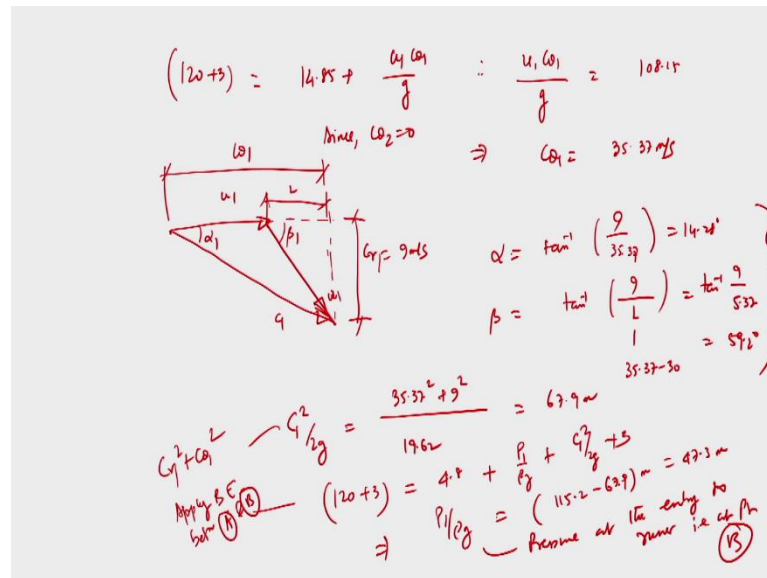 (120+3) = 14.85 + u₁ Cθ₁/g ∴ u₁ Cθ₁/g = 108.15
Since, Cθ₂=0 ⇒ Cθ₁ = 35.37 m/s
Cθ₁
u₁ L
α₁ β₁ Cr₁ = 9 m/s
C₁ w₁
α = tan⁻¹ (9/35.37) = 14.28°
β = tan⁻¹ (9/L) = tan⁻¹ 9/5.37
35.37-30 = 59.2°
Cr₁² + Cθ₁² — C₁²/2g = (35.37² + 9²)/19.62 = 67.9 m
Apply B E betn (A) & (B) — (120+3) = 4.8 + P₁/ρg + C₁²/2g + 3
⇒ P₁/ρg = (115.2-67.9) m = 47.3 m
Pressure at the entry to
runner i.e at Pt
(B)